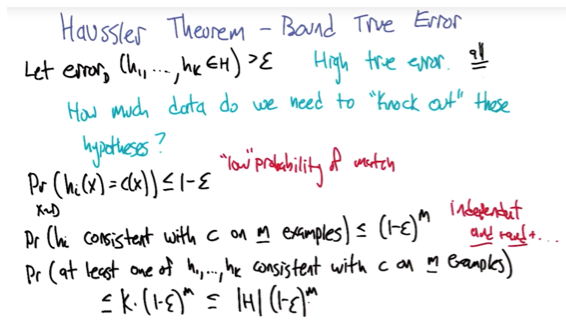 Haussler Theorem - Bound True Error
Let error_D (h₁,...,h_k ∈ H) > ε High true error. all
How much data do we need to "knock out" these
hypotheses?
Pr (hᵢ(x) = c(x)) ≤ 1-ε "low" probability of match
x~D
independent
Pr (hᵢ consistent with c on m examples) ≤ (1-ε)^m and and + ...
Pr (at least one of h₁,...,h_k consistent with c on m examples)
≤ k·(1-ε)^m ≤ |H| (1-ε)^m